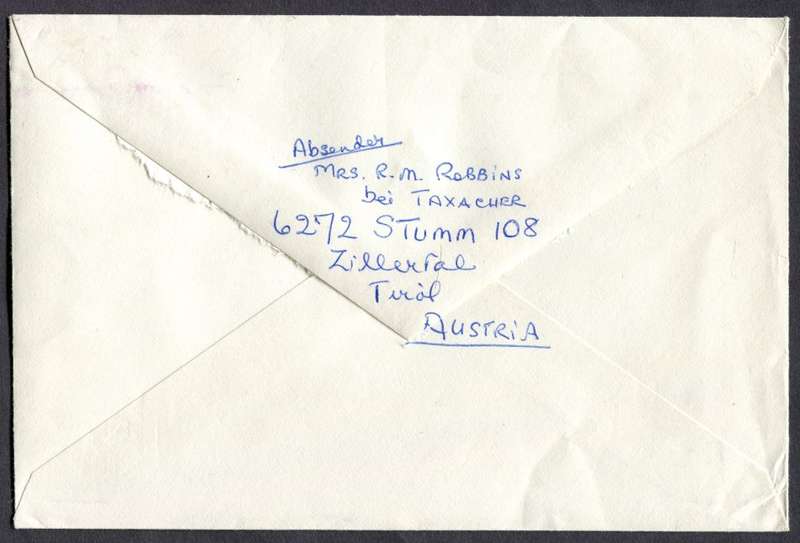 Absender
MRS. R. M. ROBBINS
bei TAXACHER
6272 STumm 108
Zillertal
Tirol
AUSTRIA